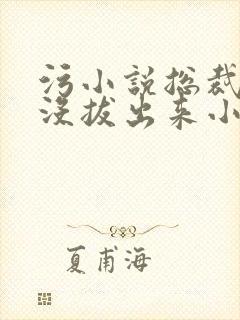 污小说总裁
没拔出来小
夏甫海